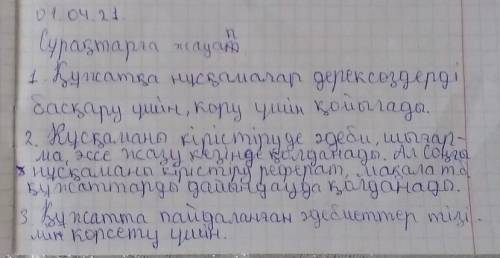 01.04.21.
Сұрақтарға жауап
1. Құжатқа нұсқамалар дереккөздерді
басқару үшін, қору үшін қойылады.
2. Нұсқаманы кірістіруде әдеби, шығар-
ма, эссе жазу кезінде қолданады. Ал соңғы
нұсқаманы кірістіру реферат, мақалата
құжаттарды дайындауда қолданады.
3. Құжатта пайдаланған әдебиеттер тізі
мін көрсету үшін.